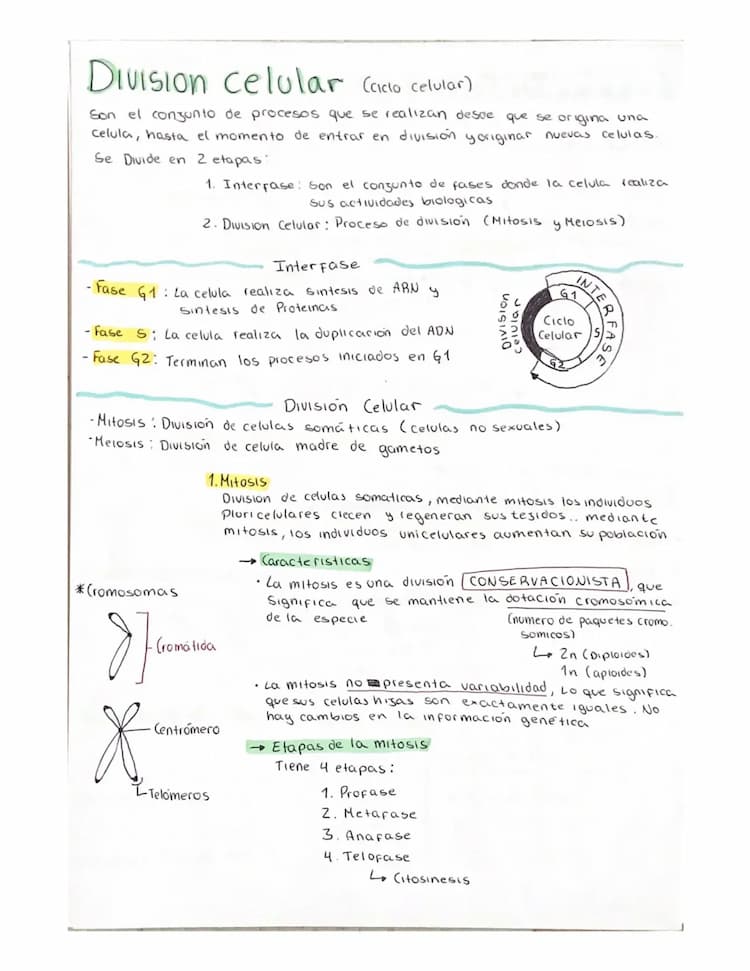 Division celular (ciclo celular)
Son el conjunto de procesos que se realizan desde que se origina una
celula, hasta el momento de entrar en división y originar nuevas celulas.
Se Divide en 2 etapas:
1. Interfase: Son el conjunto de fases donde la celula realiza
sus actividades biologicas
2. Division Celular: Proceso de división (Mitosis y Meiosis)
Interfase
- Fase G1: La celula realiza sintesis de ARN y
sintesis de Proteinas
- Fase S: La celula realiza la duplicación del ADN
- Fase G2: Terminan los procesos iniciados en G1
División
celular
INTERFASE
G1
S
G2
Ciclo
Celular
División Celular
· Mitosis: División de celulas somáticas (celulas no sexuales)
· Meiosis: División de celula madre de gametos
1. Mitosis
Division de celulas somaticas, mediante mitosis los individuos
Pluricelulares crecen y regeneran sus tejidos.. mediante
mitosis, los individuos unicelulares aumentan su población
→ Caracteristicas
· La mitosis es una división CONSERVACIONISTA, que
significa que se mantiene la dotación cromosómica
de la especie
(numero de paquetes cromo.
somicos)
↳ 2n (Diploides)
1n (aploides)
· La mitosis no presenta variabilidad, Lo que significa
que sus celulas hijas son exactamente iguales. No
hay cambios en la información genética
* Cromosomas
Cromátida
Centrómero
Telómeros
→ Etapas de la mitosis
Tiene 4 etapas:
1. Profase
2. Metafase
3. Anafase
4. Telofase
↳ Citosinesis